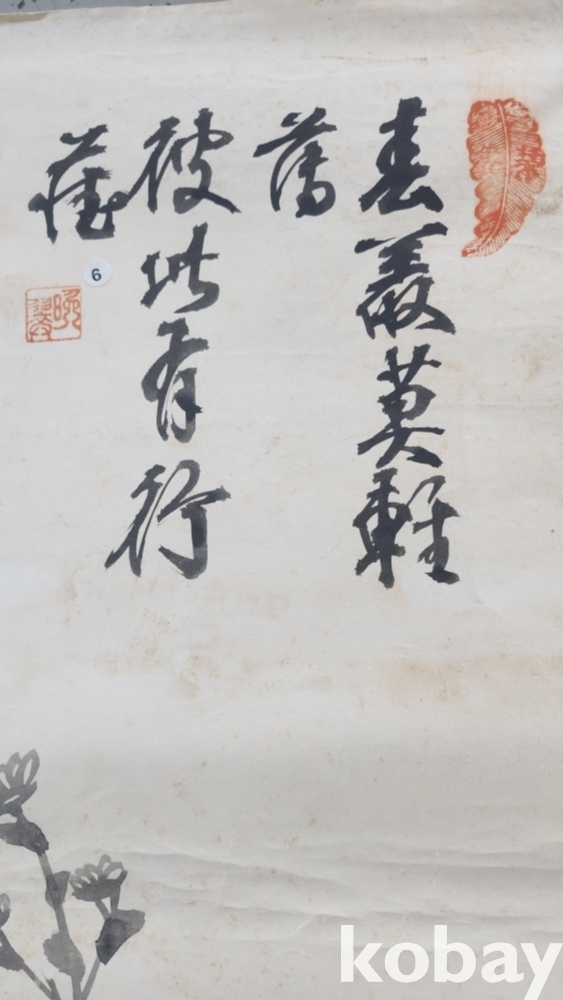 春叢莫輕
薄
彼此有行
藏
6
kobay